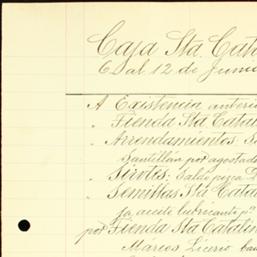 Caja Sta. Cata
6 al 12 de Juni
A Existencia anteri
" Tienda Sta Catar
" Arrendamientos: Sa
Santillán por agostade
" Sirios: Saldo pieza
" Semillas Sta Catal
ja, aceite lubricante pa
por Tienda Sta Catalin
Marcos Licerio